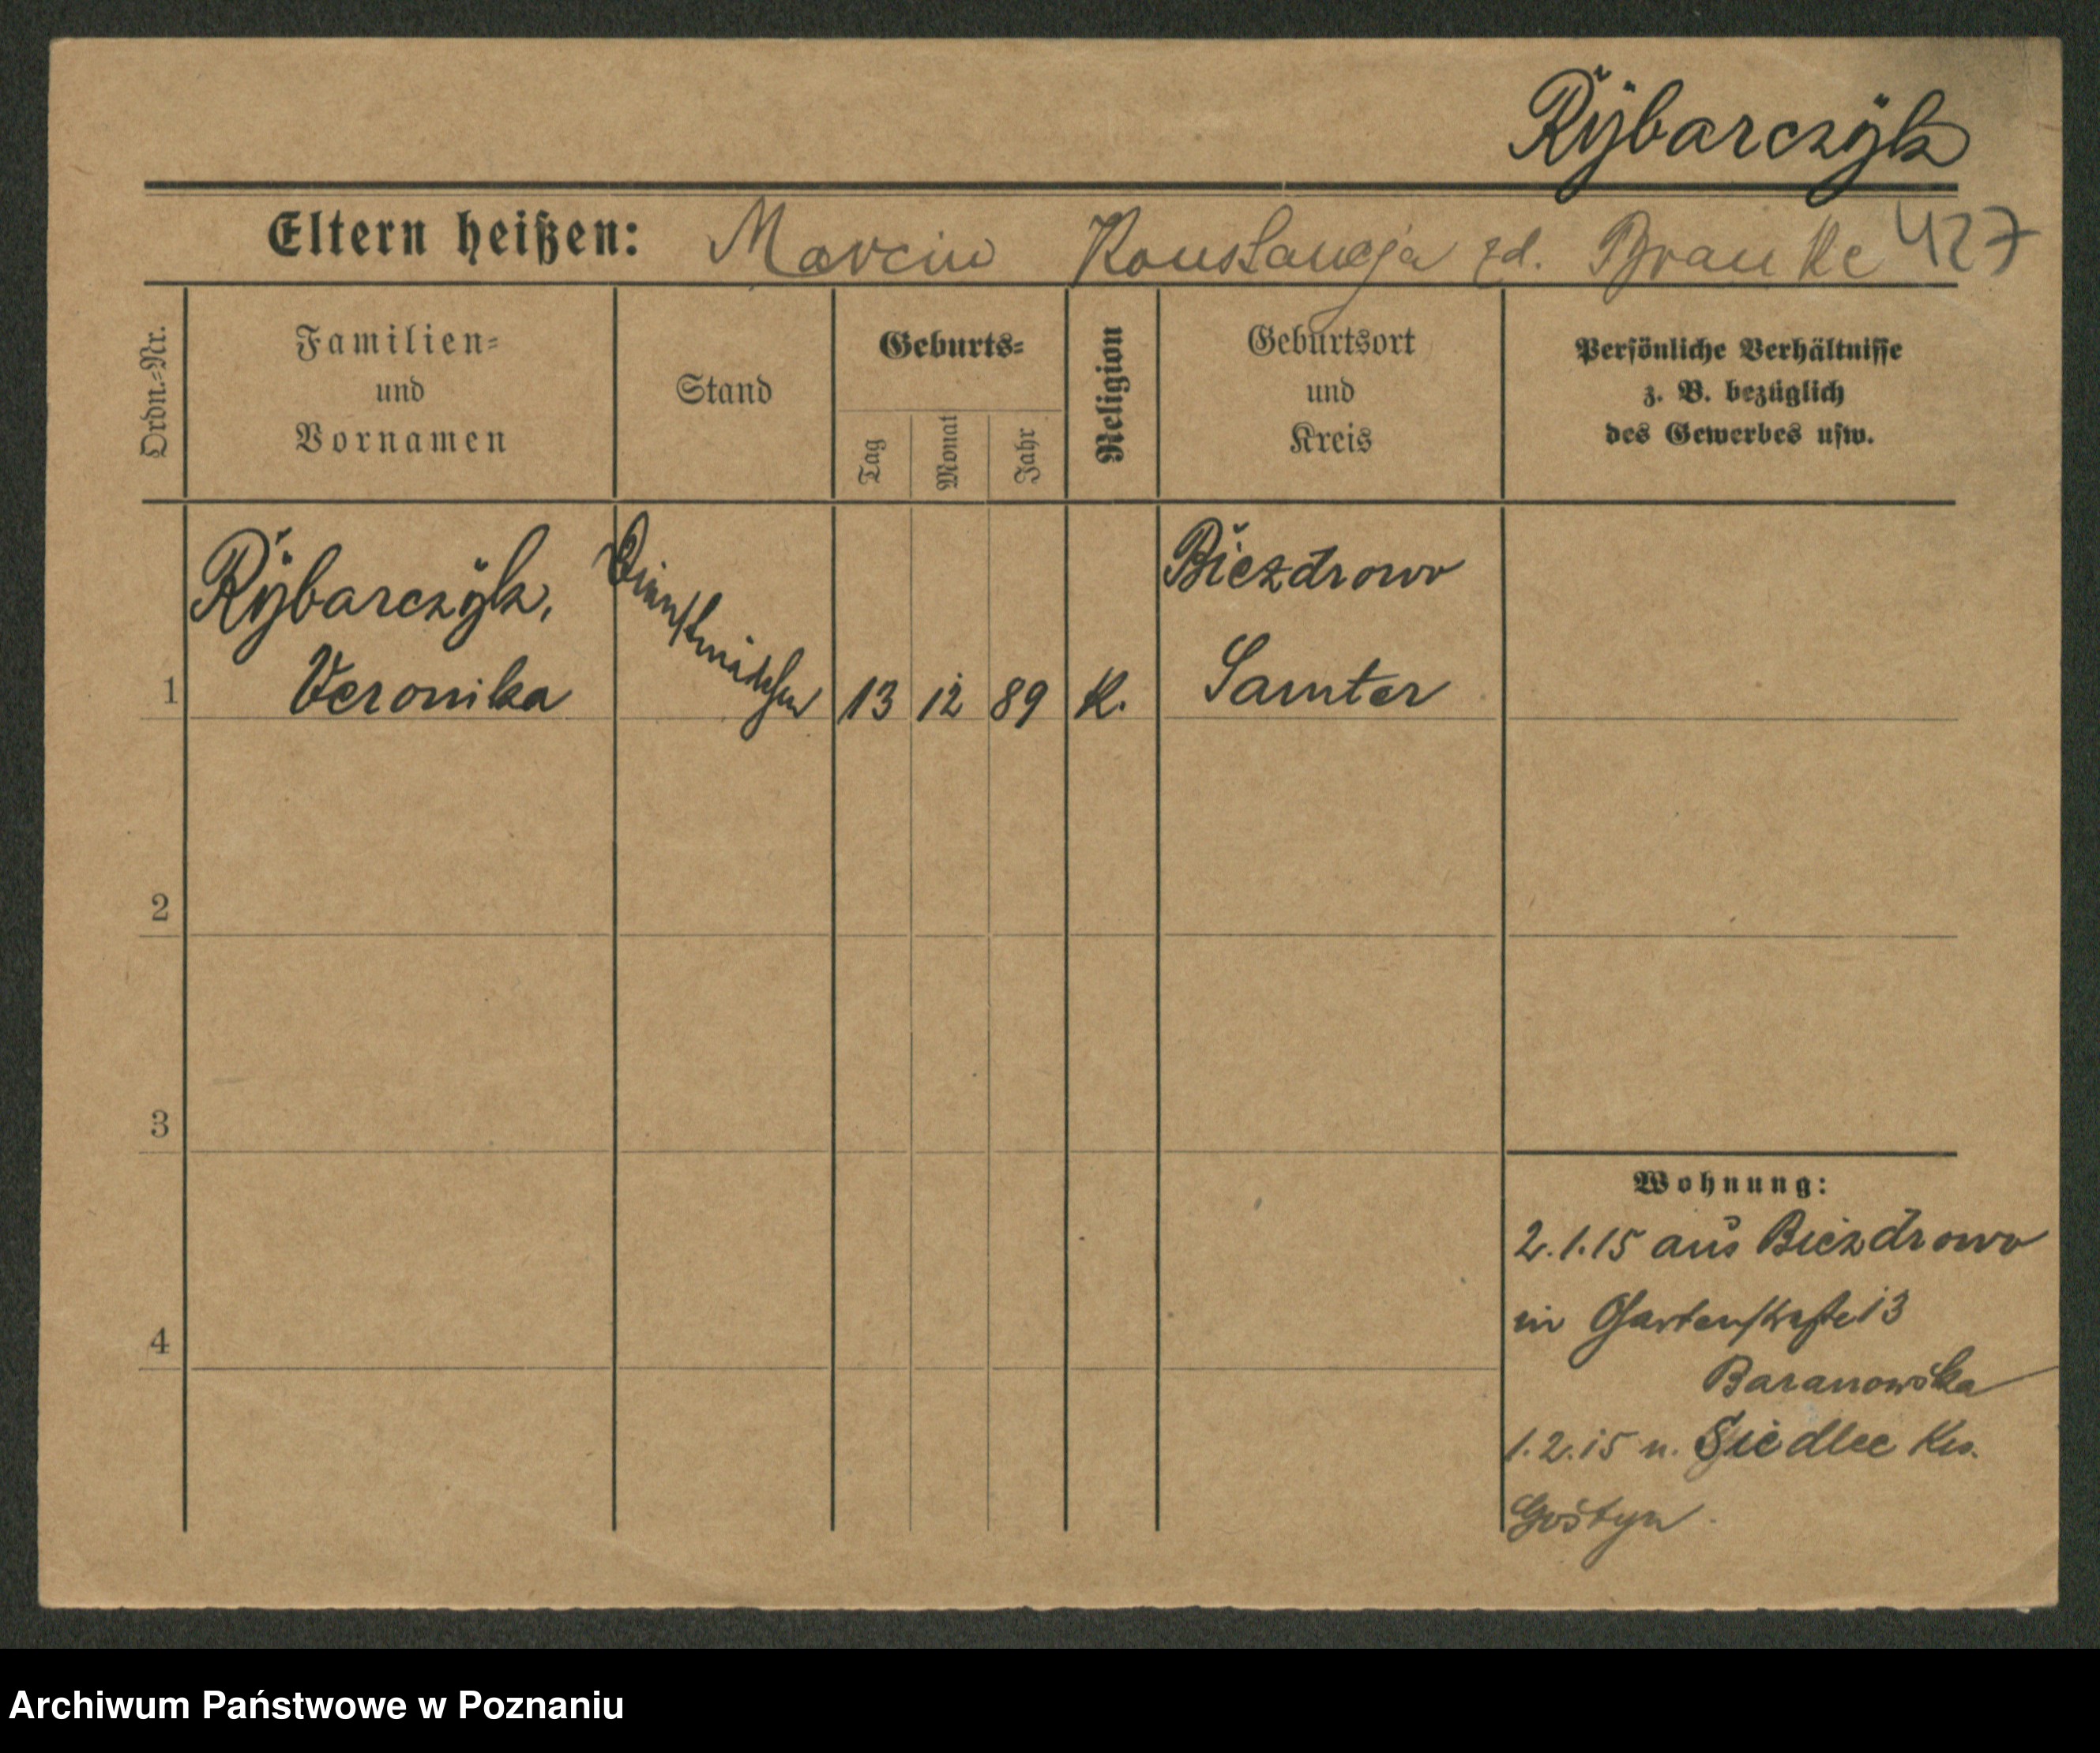 Rybarczyk
Eltern heißen: Marcin Konstancja zd. Branke 427
Ordn.-Nr.
Familien-
und
Vornamen
Stand
Geburts-
Tag
Monat
Jahr
Religion
Geburtsort
und
Kreis
Persönliche Verhältnisse
z. B. bezüglich
des Gewerbes usw.
1
Rybarczyk,
Veronika
Dienstmädchen
13 12 89 K.
Biezdrowo
Samter
2
3
4
Wohnung:
2.1.15 aus Biezdrowo
in Gartenstraße 13
Baranowska
1.2.15 n. Siedlec Krs.
Gostyn
Archiwum Państwowe w Poznaniu